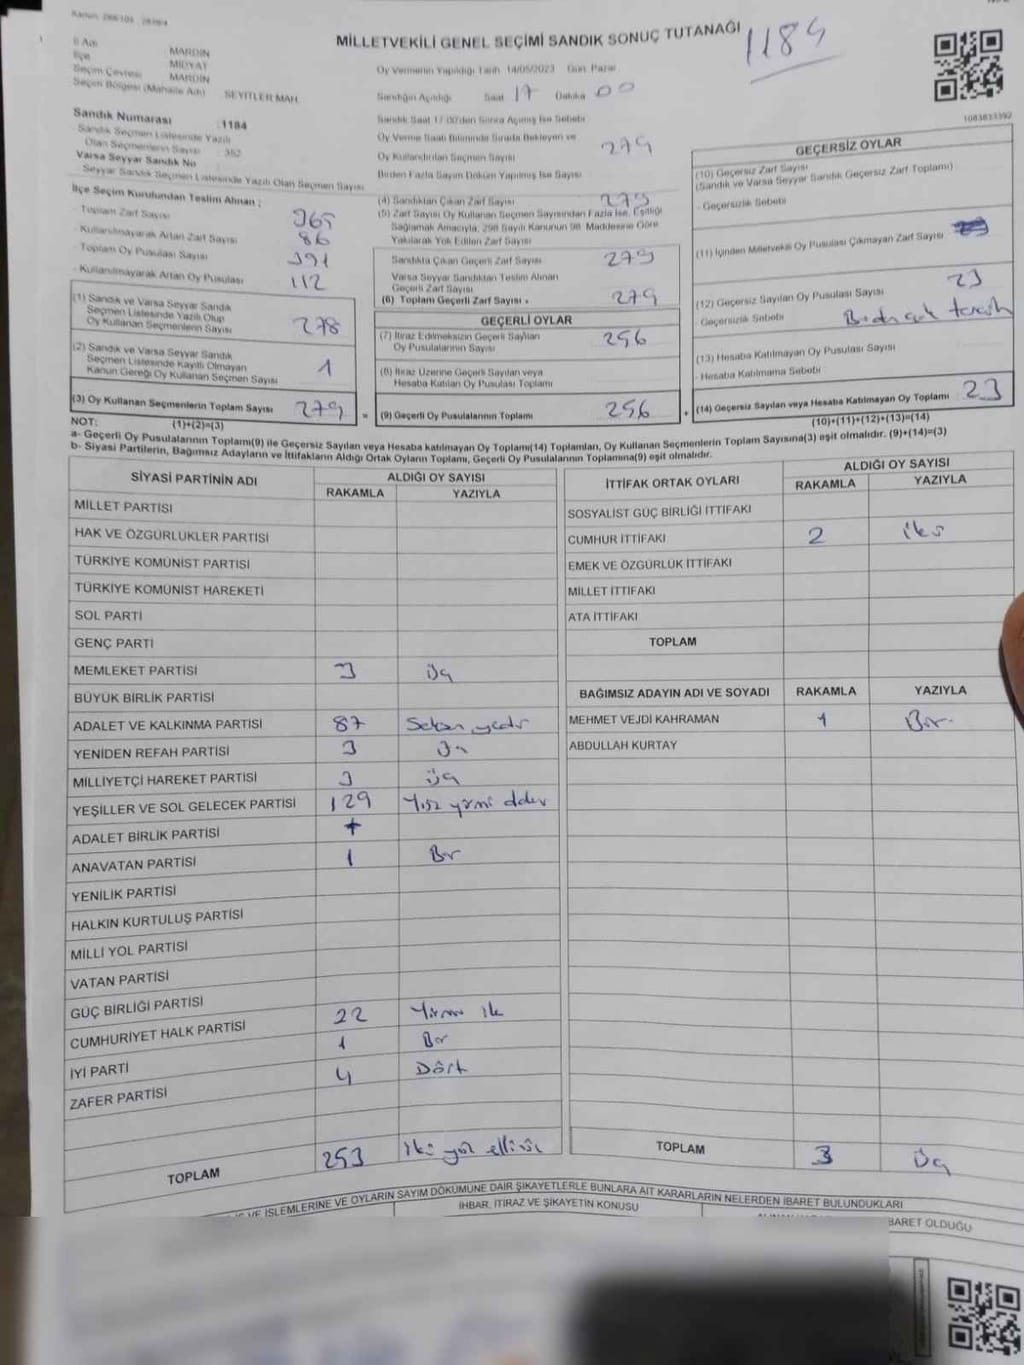 Kanun: 298/105 , 2839/4
MİLLETVEKİLİ GENEL SEÇİMİ SANDIK SONUÇ TUTANAĞI
1184
İl Adı MARDİN
İlçe MİDYAT
Seçim Çevresi MARDİN
Seçim Bölgesi (Mahalle Adı) SEYİTLER MAH.
Oy Vermenin Yapıldığı Tarih 14/05/2023 Gün: Pazar
Sandığın Açıldığı Saat 17 Dakika 00
Sandık Numarası :1184
Sandık Seçmen Listesinde Yazılı
Olan Seçmenlerin Sayısı : 352
Varsa Seyyar Sandık No
Seyyar Sandık Seçmen Listesinde Yazılı Olan Seçmen Sayısı
Sandık Saat 17:00'den Sonra Açılmış İse Sebebi
Oy Verme Saati Bitiminde Sırada Bekleyen ve
Oy Kullandırılan Seçmen Sayısı 279
Birden Fazla Sayım Döküm Yapılmış İse Sayısı
1083833392
İlçe Seçim Kurulundan Teslim Alınan ;
- Toplam Zarf Sayısı 365
- Kullanılmayarak Artan Zarf Sayısı 86
- Toplam Oy Pusulası Sayısı 391
- Kullanılmayarak Artan Oy Pusulası 112
(1) Sandık ve Varsa Seyyar Sandık
Seçmen Listesinde Yazılı Olup
Oy Kullanan Seçmenlerin Sayısı 278
(2) Sandık ve Varsa Seyyar Sandık
Seçmen Listesinde Kayıtlı Olmayan
Kanun Gereği Oy Kullanan Seçmen Sayısı 1
(3) Oy Kullanan Seçmenlerin Toplam Sayısı 279
(1)+(2)=(3)
(4) Sandıktan Çıkan Zarf Sayısı 279
(5) Zarf Sayısı Oy Kullanan Seçmen Sayısından Fazla İse, Eşitliği
Sağlamak Amacıyla, 298 Sayılı Kanunun 98. Maddesine Göre
Yakılarak Yok Edilen Zarf Sayısı
Sandıkta Çıkan Geçerli Zarf Sayısı 279
Varsa Seyyar Sandıktan Teslim Alınan
Geçerli Zarf Sayısı
(6) Toplam Geçerli Zarf Sayısı = 279
GEÇERLİ OYLAR
(7) İtiraz Edilmeksizin Geçerli Sayılan
Oy Pusulalarının Sayısı 256
(8) İtiraz Üzerine Geçerli Sayılan veya
Hesaba Katılan Oy Pusulası Toplamı
= (9) Geçerli Oy Pusulalarının Toplamı 256
GEÇERSİZ OYLAR
(10) Geçersiz Zarf Sayısı
(Sandık ve Varsa Seyyar Sandık Geçersiz Zarf Toplamı)
- Geçersizlik Sebebi
(11) İçinden Milletvekili Oy Pusulası Çıkmayan Zarf Sayısı
(12) Geçersiz Sayılan Oy Pusulası Sayısı 23
- Geçersizlik Sebebi Birden çok tercih
(13) Hesaba Katılmayan Oy Pusulası Sayısı
- Hesaba Katılmama Sebebi
+ (14) Geçersiz Sayılan veya Hesaba Katılmayan Oy Toplamı 23
(10)+(11)+(12)+(13)=(14)
NOT:
a- Geçerli Oy Pusulalarının Toplamı(9) ile Geçersiz Sayılan veya Hesaba katılmayan Oy Toplamı(14) Toplamları, Oy Kullanan Seçmenlerin Toplam Sayısına(3) eşit olmalıdır. (9)+(14)=(3)
b- Siyasi Partilerin, Bağımsız Adayların ve İttifakların Aldığı Ortak Oyların Toplamı, Geçerli Oy Pusulalarının Toplamına(9) eşit olmalıdır.
SİYASİ PARTİNİN ADI ALDIĞI OY SAYISI
RAKAMLA YAZIYLA
MİLLET PARTİSİ
HAK VE ÖZGÜRLÜKLER PARTİSİ
TÜRKİYE KOMÜNİST PARTİSİ
TÜRKİYE KOMÜNİST HAREKETİ
SOL PARTİ
GENÇ PARTİ
MEMLEKET PARTİSİ 3 Üç
BÜYÜK BİRLİK PARTİSİ
ADALET VE KALKINMA PARTİSİ 87 Seksen yedi
YENİDEN REFAH PARTİSİ 3 Üç
MİLLİYETÇİ HAREKET PARTİSİ 3 Üç
YEŞİLLER VE SOL GELECEK PARTİSİ 129 Yüz yirmi dokuz
ADALET BİRLİK PARTİSİ
ANAVATAN PARTİSİ 1 Bir
YENİLİK PARTİSİ
HALKIN KURTULUŞ PARTİSİ
MİLLİ YOL PARTİSİ
VATAN PARTİSİ
GÜÇ BİRLİĞİ PARTİSİ
CUMHURİYET HALK PARTİSİ 22 Yirmi iki
İYİ PARTİ 1 Bir
ZAFER PARTİSİ 4 Dört
TOPLAM 253 İki yüz elli üç
İTTİFAK ORTAK OYLARI ALDIĞI OY SAYISI
RAKAMLA YAZIYLA
SOSYALİST GÜÇ BİRLİĞİ İTTİFAKI
CUMHUR İTTİFAKI 2 iki
EMEK VE ÖZGÜRLÜK İTTİFAKI
MİLLET İTTİFAKI
ATA İTTİFAKI
TOPLAM
BAĞIMSIZ ADAYIN ADI VE SOYADI RAKAMLA YAZIYLA
MEHMET VEJDİ KAHRAMAN 1 Bir
ABDULLAH KURTAY
TOPLAM 3 Üç
VE İŞLEMLERİNE VE OYLARIN SAYIM DÖKÜMÜNE DAİR ŞİKAYETLERLE BUNLARA AİT KARARLARIN NELERDEN İBARET BULUNDUKLARI
İHBAR, İTİRAZ VE ŞİKAYETİN KONUSU
BARET OLDUĞU